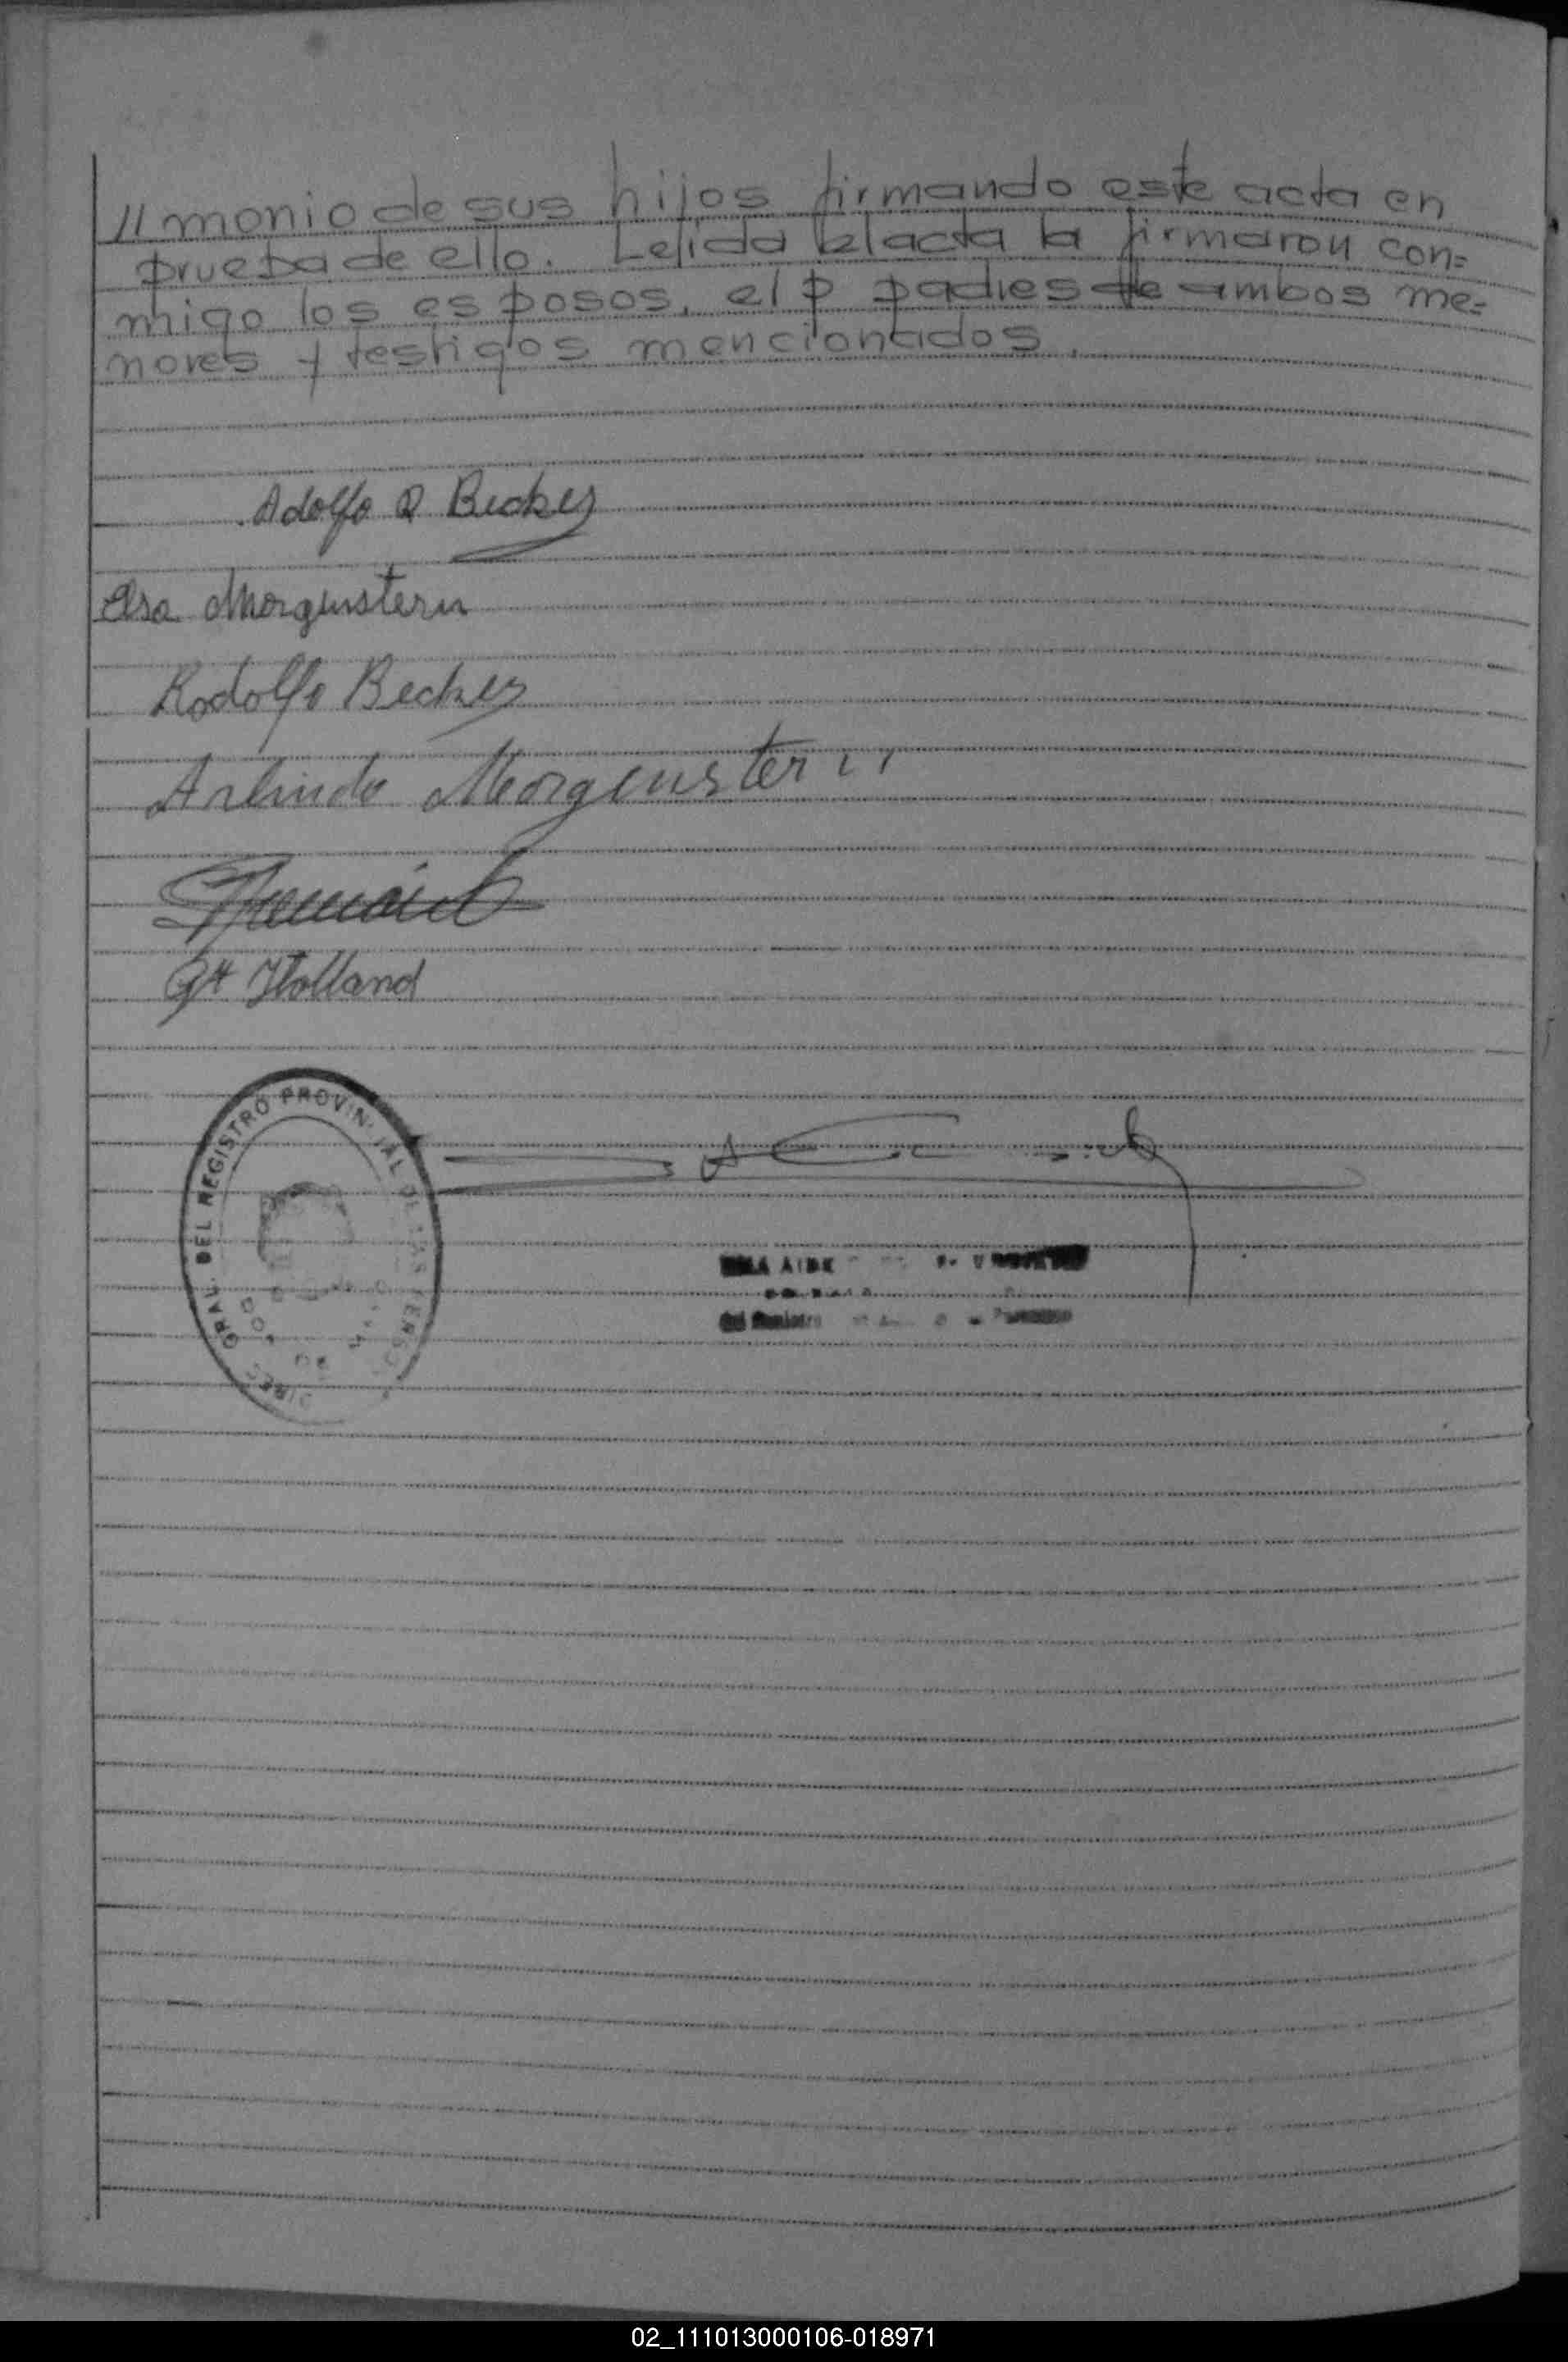 // monio de sus hijos firmando este acta en
prueba de ello. Leiida el acta la firmaron con=
migo los esposos, el p padres de ambos me=
nores y testigos mencionados.
Adolfo R Becker
Elsa Morgenstern
Rodolfo Becker
Arlindo Morgenstern
Holland
GRAL. DEL REGISTRO PROVINCIAL DE LAS PERSO
DIREC
02_111013000106-018971